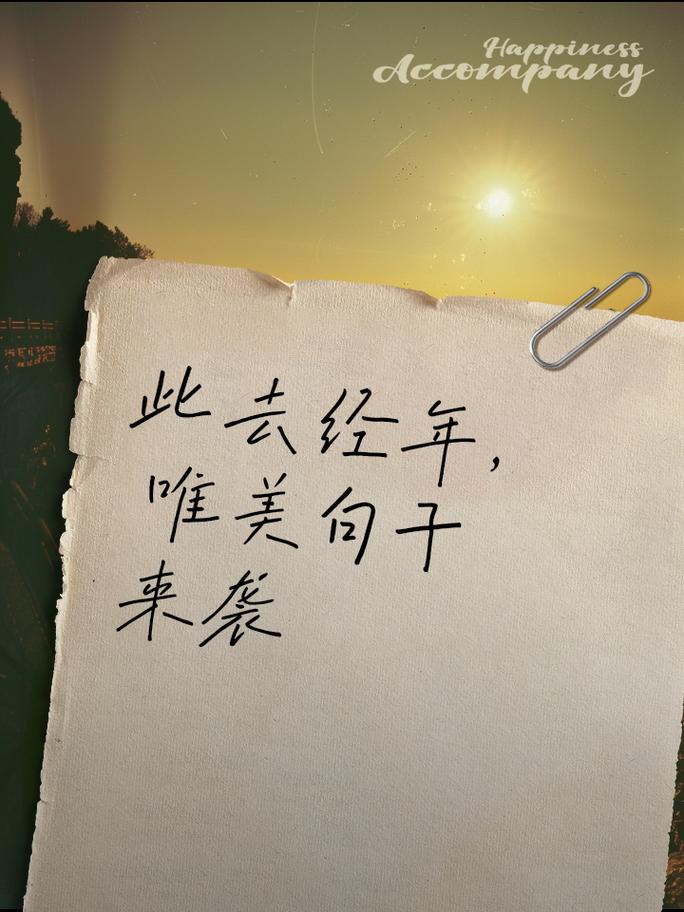 Happiness
Accompany
此去经年,
唯美句子
来袭